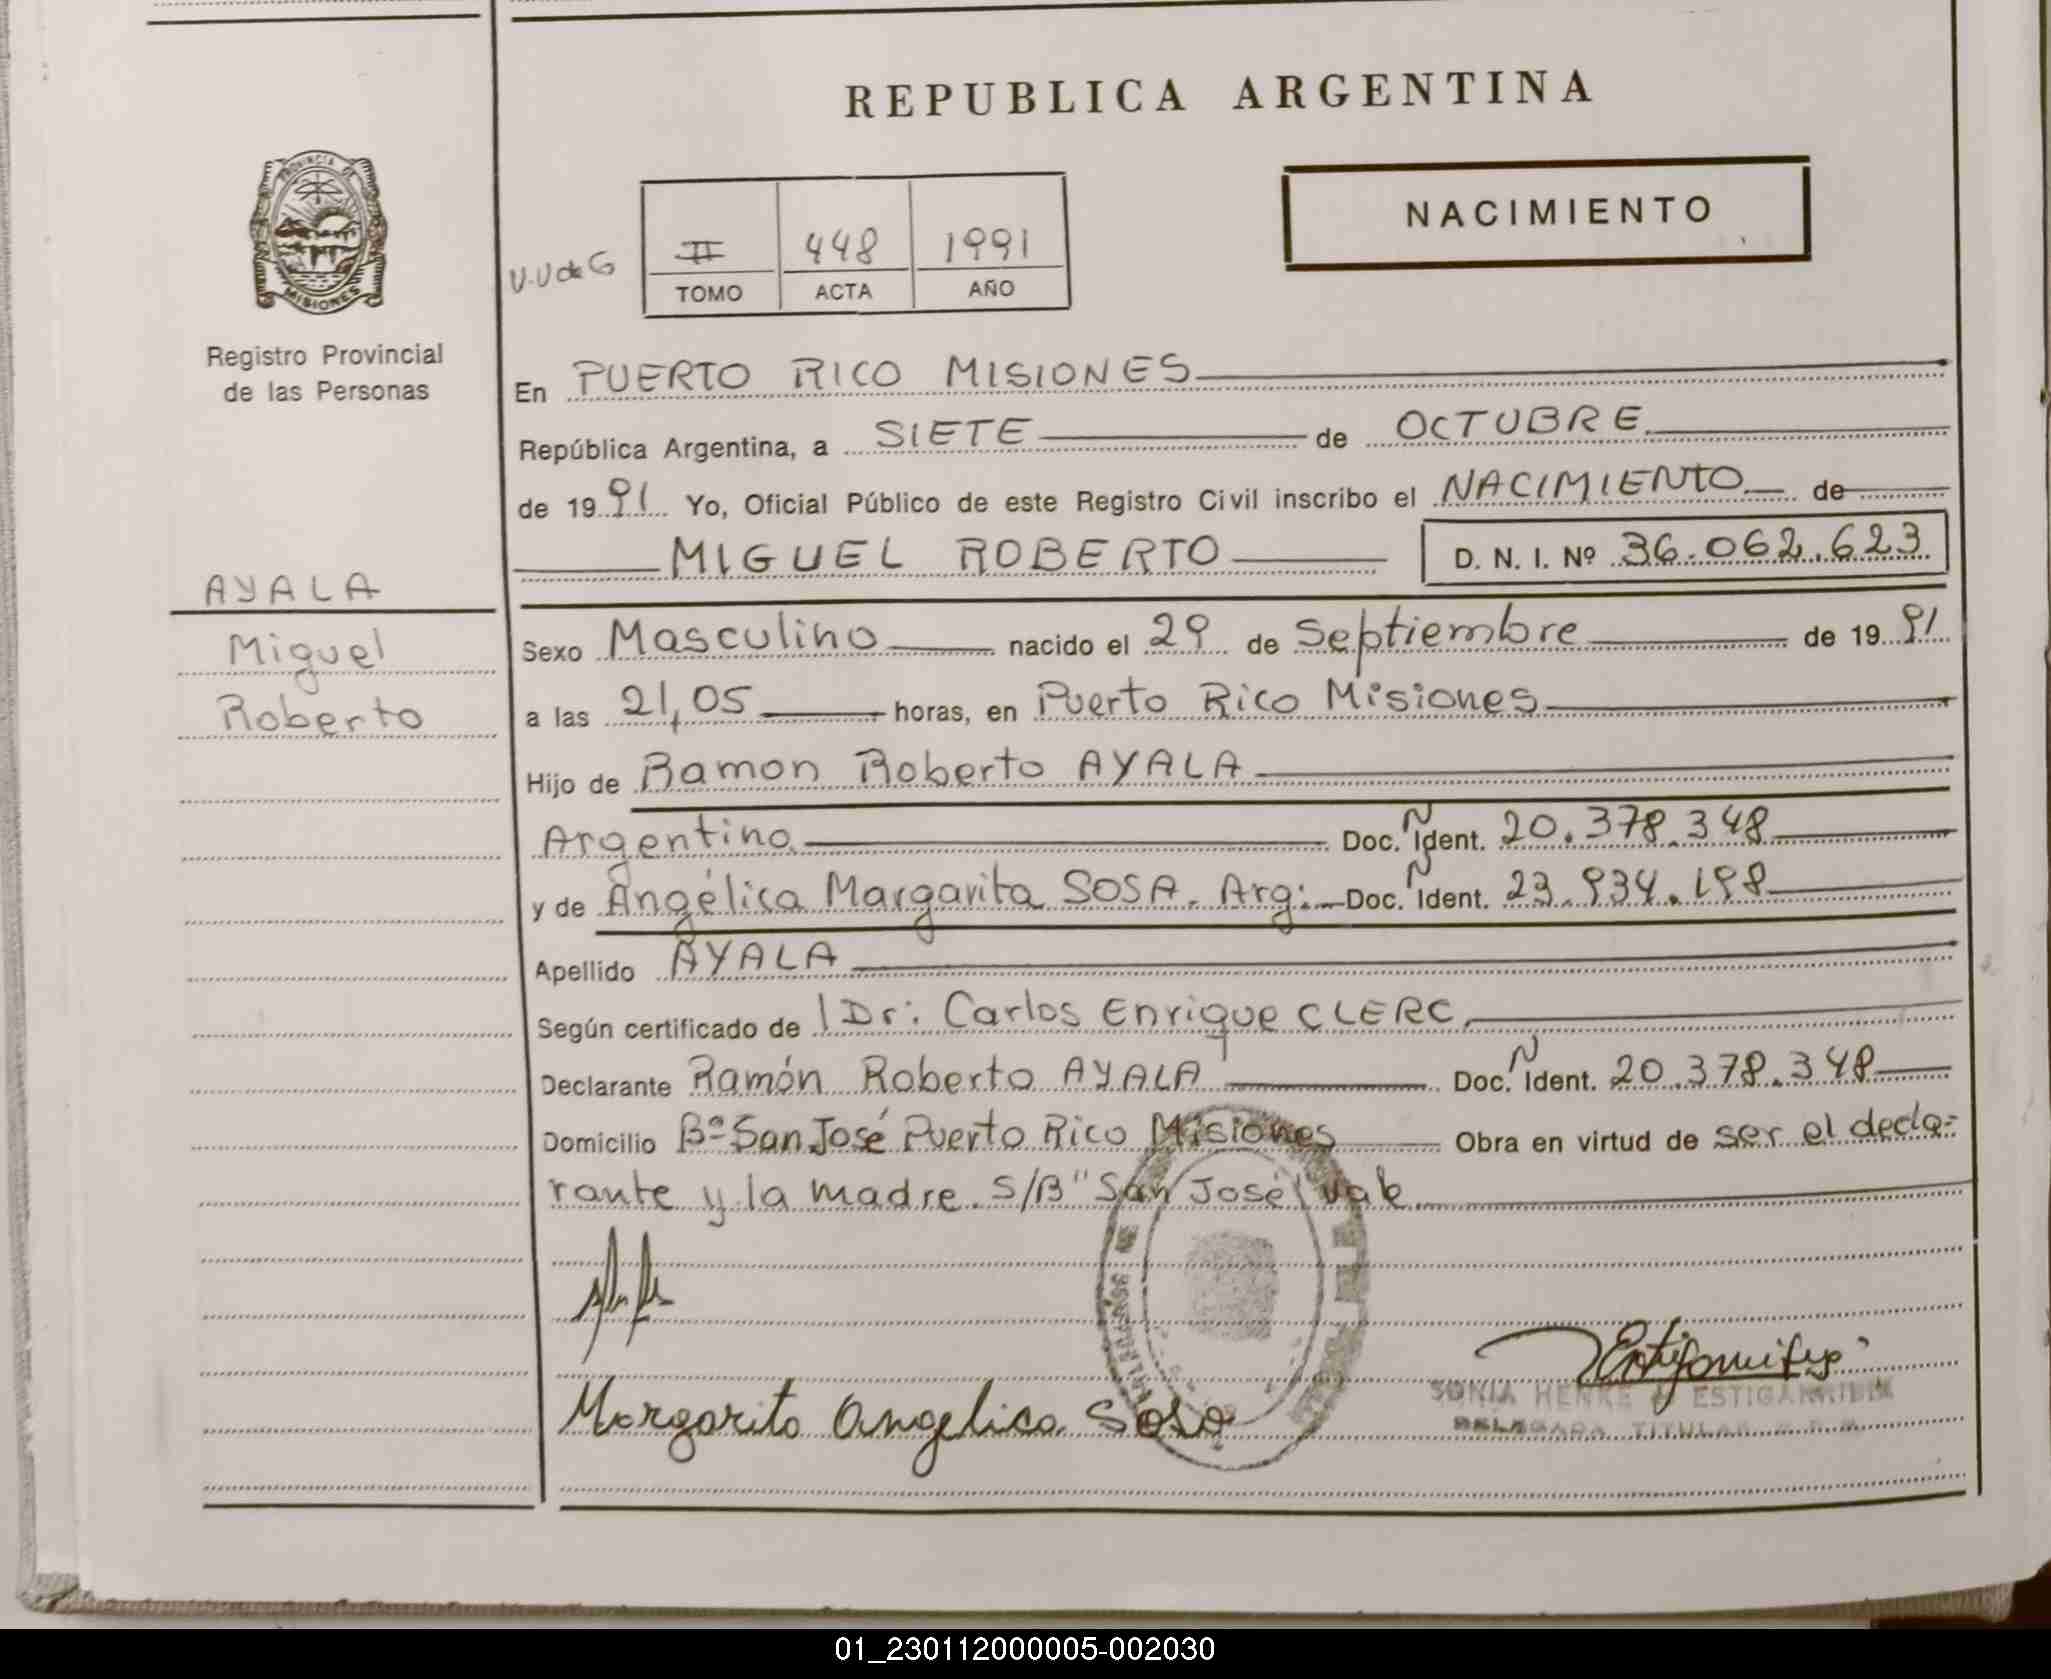 REPUBLICA ARGENTINA
PROVINCIA DE MISIONES
Registro Provincial
de las Personas
NACIMIENTO
V.V de G
II 448 1991
TOMO ACTA AÑO
En PUERTO RICO MISIONES
República Argentina, a SIETE de OCTUBRE
de 1991 Yo, Oficial Público de este Registro Civil inscribo el NACIMIENTO de
MIGUEL ROBERTO D. N. I. Nº 36.062.623
AYALA
Miguel
Roberto
Sexo Masculino nacido el 29 de Septiembre de 1991
a las 21,05 horas, en Puerto Rico Misiones
Hijo de Ramon Roberto AYALA
Argentino Doc. N Ident. 20.378.348
y de Angélica Margarita SOSA. Arg: Doc. N Ident. 23.934.198
Apellido AYALA
Según certificado de Dr: Carlos Enrique CLERC
Declarante Ramón Roberto AYALA Doc. N Ident. 20.378.348
Domicilio Bº San José Puerto Rico Misiones Obra en virtud de ser el decla-
rante y la madre. S/B "San José" vale
Margarita Angelica Sosa
SONIA HENKE de ESTIGARRIBIA
TITULAR
01_230112000005-002030